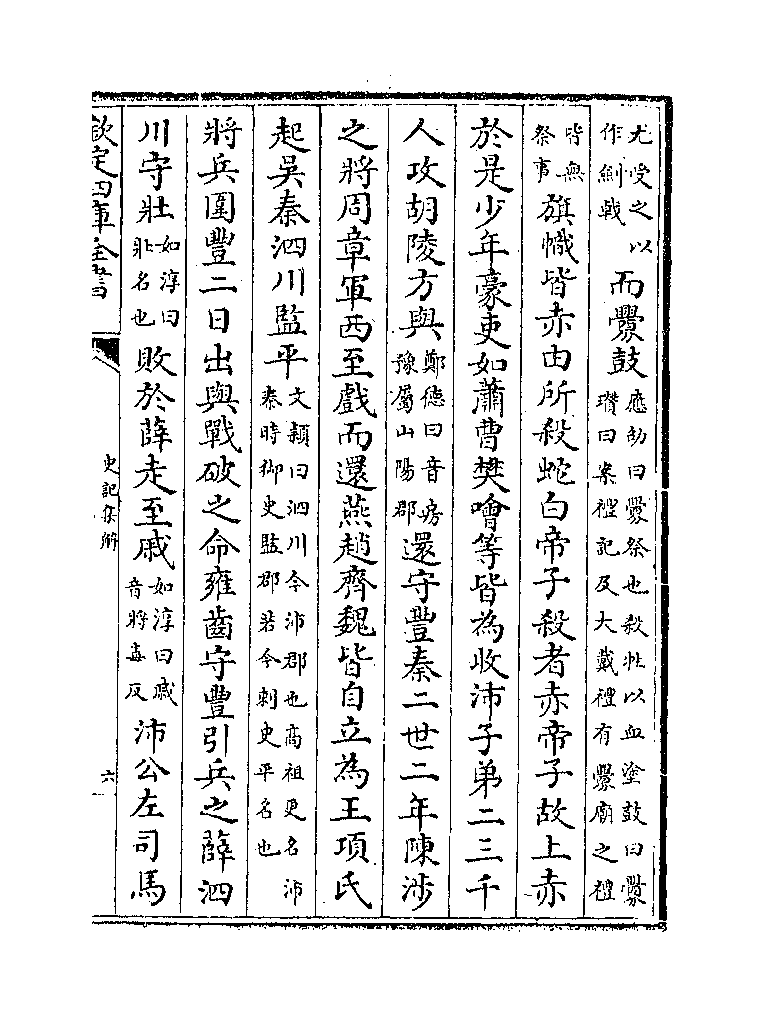 尤受之以作劍戟而釁鼓應劭曰釁祭也殺牲以血塗鼓曰釁瓚曰案禮記及大戴禮有釁廟之禮
皆無祭事旗幟皆赤由所殺蛇白帝子殺者赤帝子故上赤
於是少年豪吏如蕭曹樊噲等皆為收沛子弟二三千
人攻胡陵方與鄭德曰音房豫屬山陽郡還守豐秦二世二年陳涉
之將周章軍西至戲而還燕趙齊魏皆自立為王項氏
起吳秦泗川監平文穎曰泗川今沛郡也高祖更名沛秦時御史監郡若今刺史平名也
將兵圍豐二日出與戰破之命雍齒守豐引兵之薛泗
川守壯如淳曰壯名也敗於薛走至戚如淳曰戚音將毒反沛公左司馬
欽定四庫全書
史記集解
六